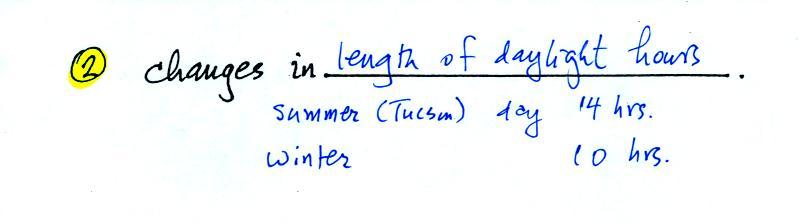 2 changes in length of daylight hours.
summer (Tucson) day 14 hrs.
winter 10 hrs.